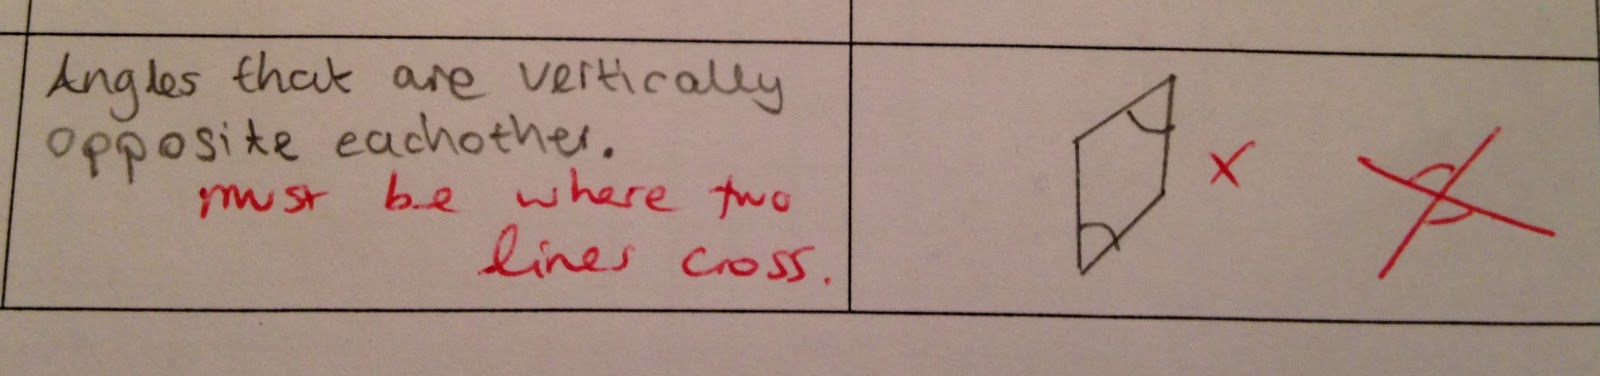 Angles that are vertically
opposite eachother.
must be where two
lines cross.